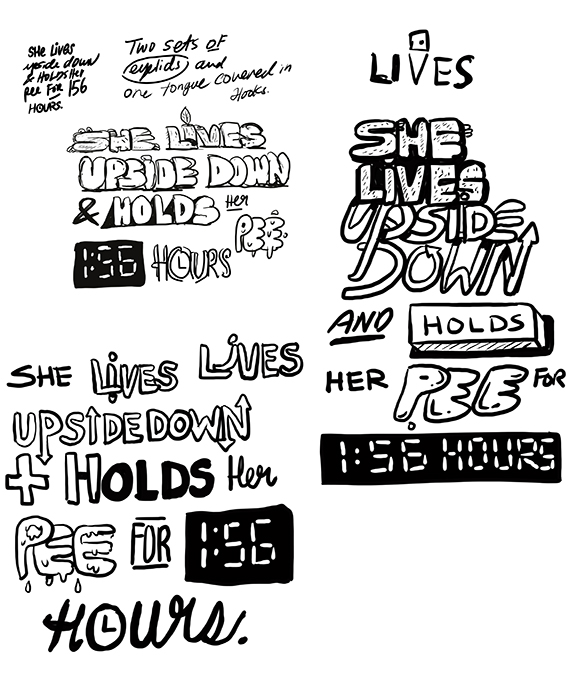 She Lives
upside down
& Holds Her
pee For 156
HOURS.
Two sets of
eyelids and
one tongue covered in
Hooks.
SHE LIVES
UPSIDE DOWN
& HOLDS Her
PEE
1:56 HOURS
SHE LIVES LIVES
UPSIDE DOWN
+ HOLDS Her
PEE FOR 1:56
HOURS.
LIVES
SHE
LIVES
UPSIDE
DOWN
AND HOLDS
HER PEE FOR
1:56 HOURS